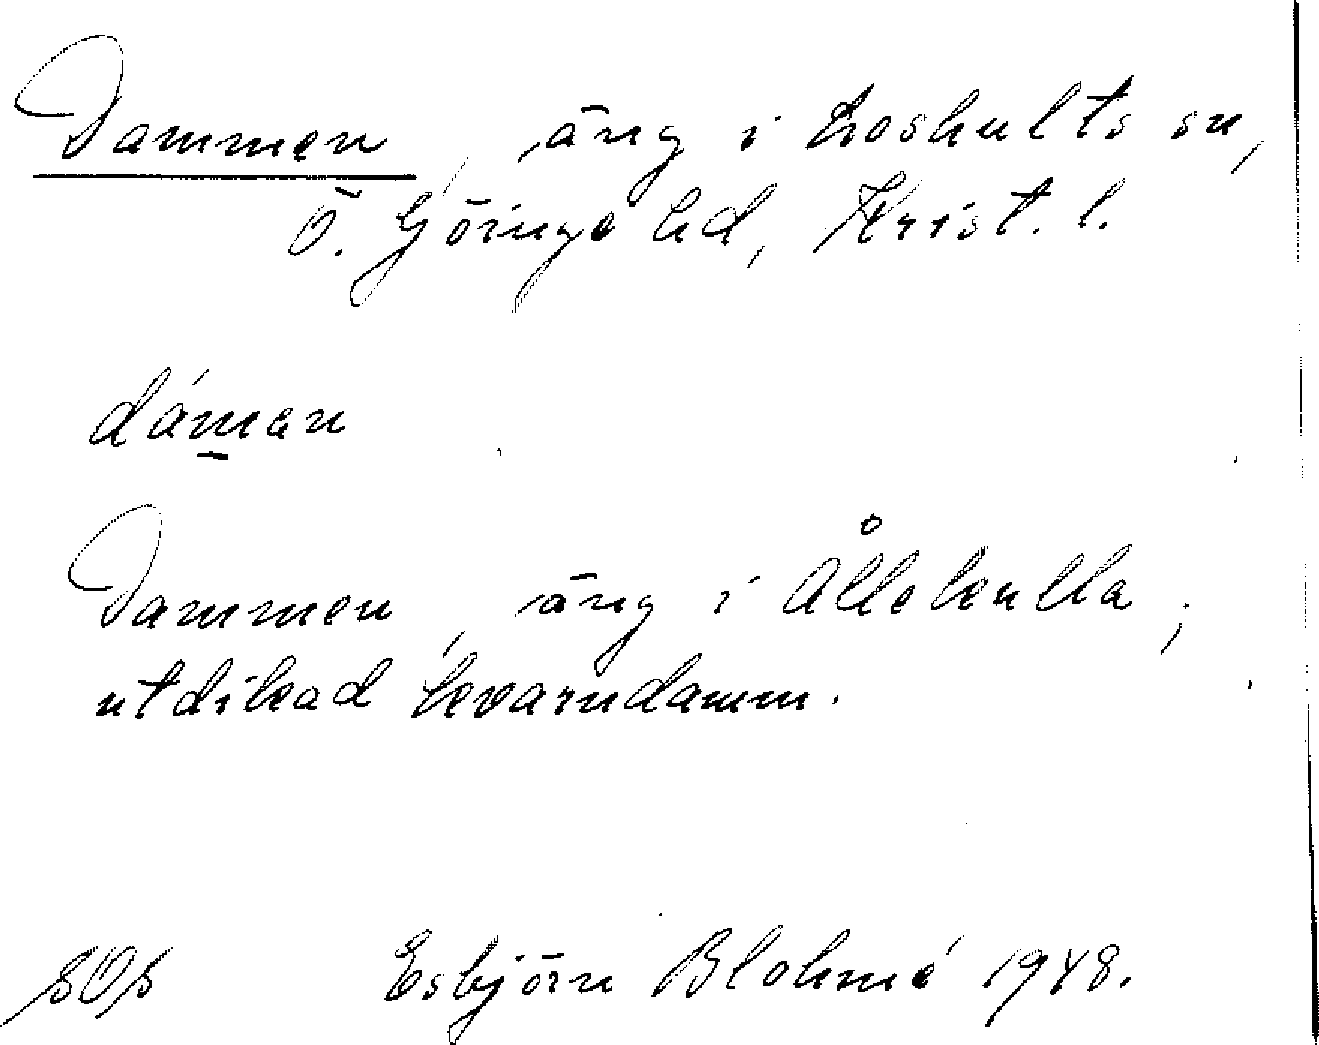 Dammen, äng i Loshults sn,
Ö. Göinge hd, Krist. l.
dám̲en
Dammen, äng i Ållekulla,
utdikad kvarndamm.
sOs Esbjörn Blohmé 1948.